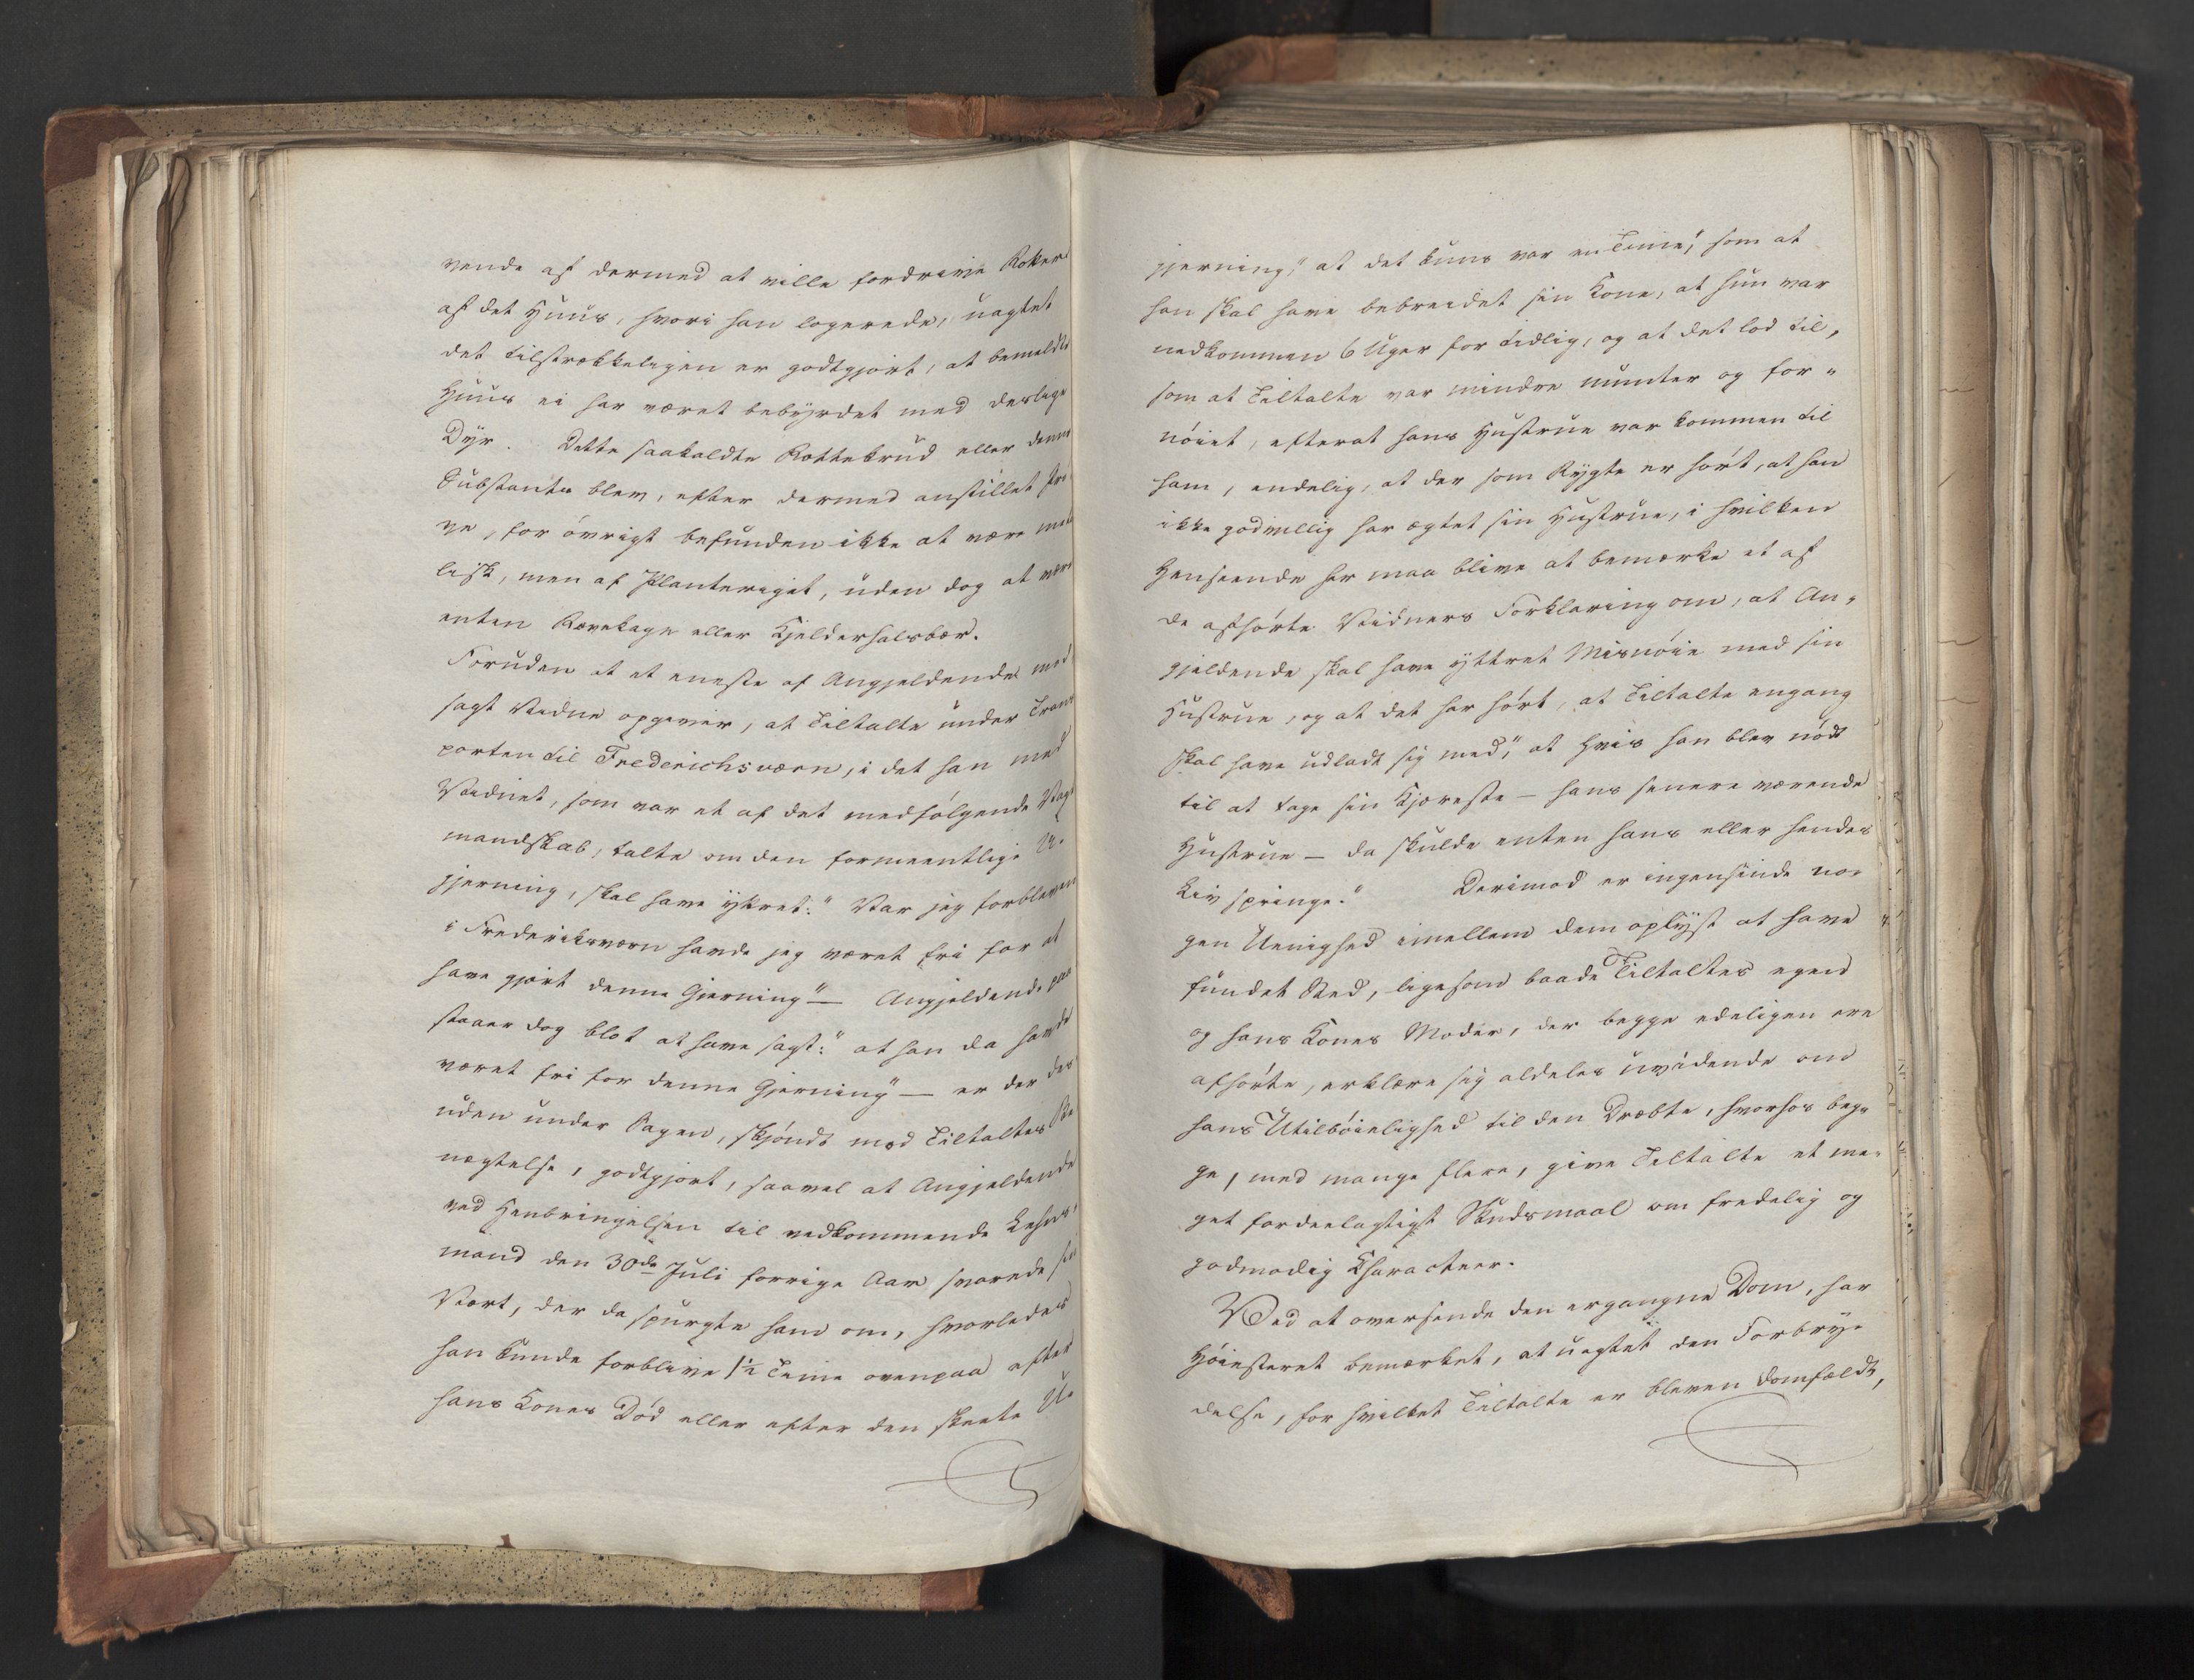 vende af dermed at ville fordrive Rotter
af det Huus, hvori han logerede, uagtet
det tilstrækkeligen er godtgjort, at bemeldte
Huus ei har været bebyrdet med deslige
Dyr. Dette saakaldte Rottekrud eller denne
Substants blev, efter dermed anstillet Prø¬
ve, for övrigt befunden ikke at være meta¬
lisk, men af Planteriget, uden dog at være
enten Rævekage eller Kjelderhalsbær.
Foruden at et eneste af Angjeldende mod¬
sagt Vidne opgiver, at Tiltalte under Trans¬
porten til Frederichsværn, i det han med
Vidnet, som var et af det medfølgende Vagt¬
mandskab, talte om den formeentlige U¬
gjerning, skal have yttret: "Var jeg forbleven
i Frederiksværn havde jeg været fri for at
have gjort denne Gjerning" — Angjeldende paa¬
staaer dog blot at have sagt: "at han da havde
været fri for denne Gjerning" — er der des¬
uden under Sagen, skjöndt mod Tiltaltes Be¬
nægtelse, godtgjort, saavel at Angjeldende
ved Henbringelsen til vedkommende Lehns¬
mand den 30de Juli forrige Aar svarede sin
Vært, der da spurgte ham om, hvorledes
han kunde forblive 1½ Time ovenpaa efter
hans Kones Död eller efter den skeete U¬
gjerning, "at det kuns var en Time," som at
han skal have bebreidet sin Kone, at hun var
nedkommen 6 Uger for tidlig, og at det lod til,
som at Tiltalte var mindre munter og for¬
nöiet, efterat hans Hustrue var kommen til
ham, endelig, at der som Rygte er hört, at han
ikke godvillig har ægtet sin Hustrue, i hvilken
Henseende her maa blive at bemærke et af
de afhörte Vidners Forklaring om, at An¬
gjeldende skal have yttret Misnöie med sin
Hustrue, og at det har hört, at Tiltalte engang
skal have udladt sig med, "at hvis han blev nödt
til at tage sin Kjæreste — hans senere værende
Hustrue — da skulde enten hans eller hendes
Liv springe." Derimod er ingensinde no¬
gen Uenighed imellem dem oplyst at have
fundet Sted, ligesom baade Tiltaltes egen
og hans Kones Moder, der begge edeligen ere
afhörte, erklære sig aldeles uvidende om
hans Utilböielighed til den Dræbte, hvorhos beg¬
ge, med mange flere, give Tiltalte et me¬
get fordeelagtigt Skudsmaal om fredelig og
godmodig Characteer.
Ved at oversende den ergangne Dom, har
Höiesteret bemærket, at uagtet den Forbry¬
delse, for hvilket Tiltalte er bleven domfældt,